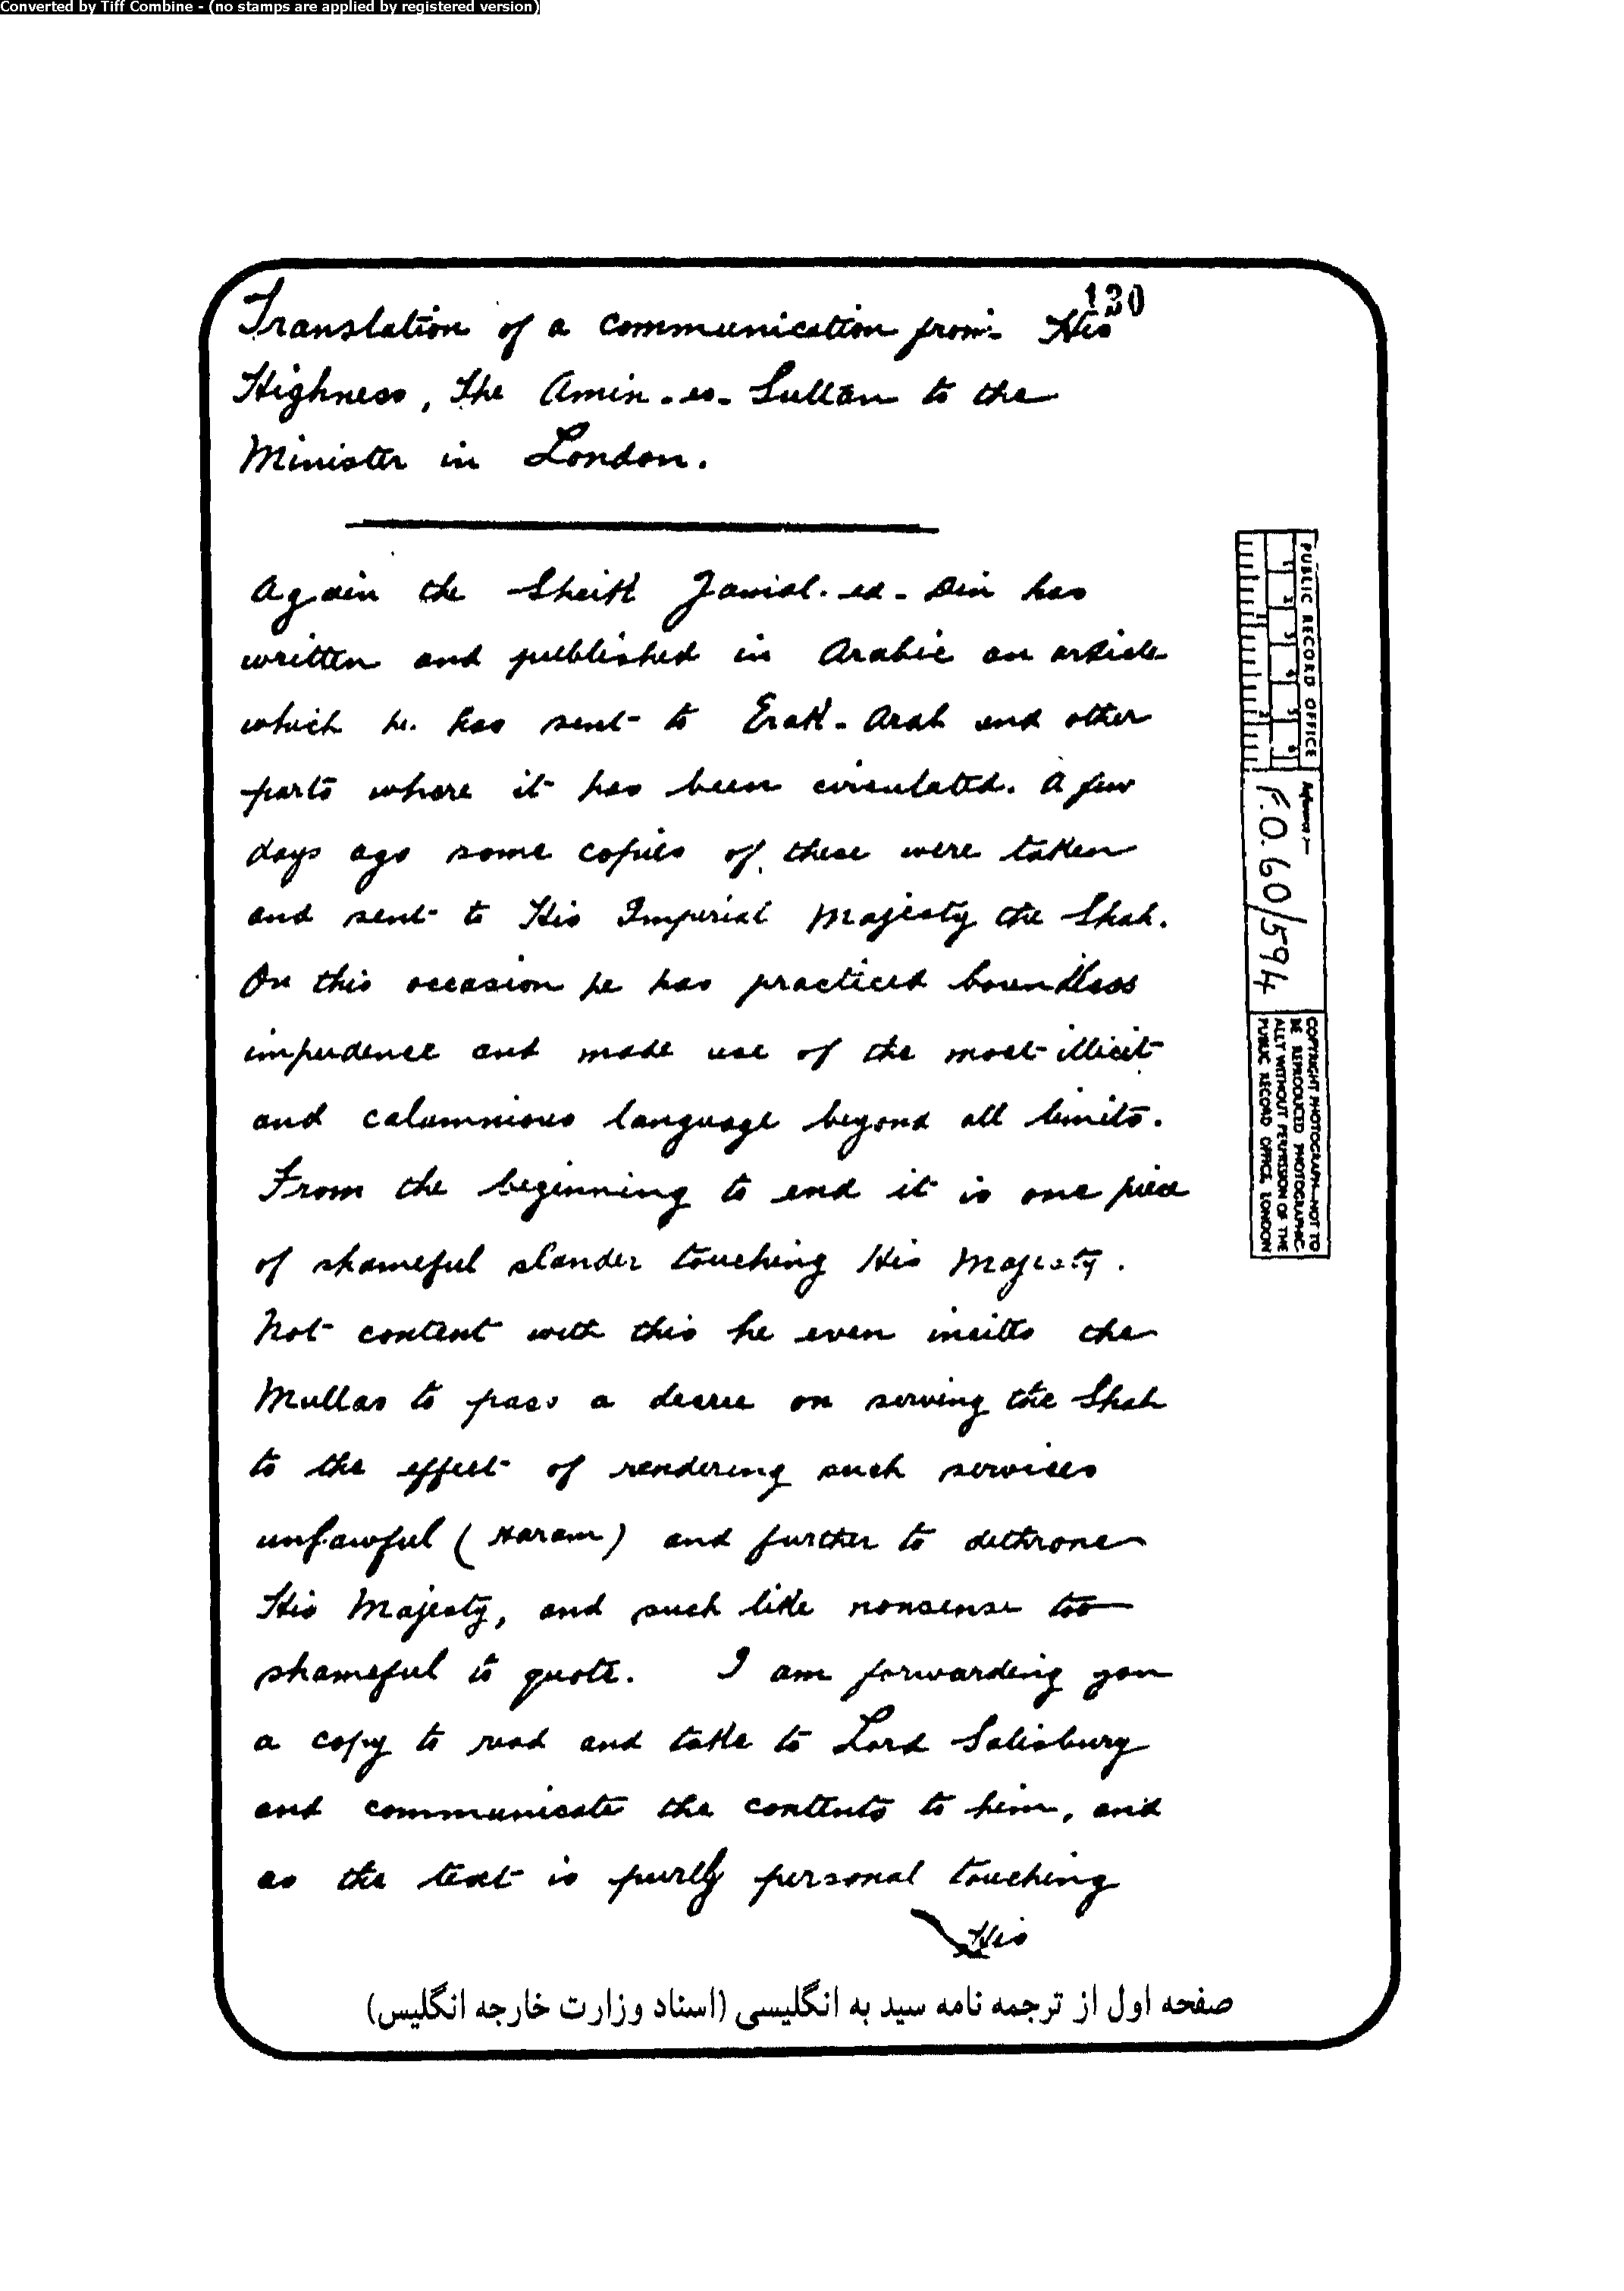 Converted by Tiff Combine - (no stamps are applied by registered version)
130
Translation of a communication from His
Highness, The Amin-es-Sultan to the
Minister in London.
Again the Sheikh Jamal-ed-Din has
written and published in Arabic an article
which he has sent to Erak-Arab and other
parts where it has been circulated. A few
days ago some copies of these were taken
and sent to His Imperial Majesty the Shah.
On this occasion he has practiced boundless
impudence and made use of the most illicit
and calumnious language beyond all limits.
From the beginning to end it is one piece
of shameful slander touching His Majesty.
Not content with this he even incites the
Mullas to pass a decree on serving the Shah
to the effect of rendering such services
unlawful (Haram) and further to dethrone
His Majesty, and such like nonsense too
shameful to quote. I am forwarding you
a copy to read and take to Lord Salisbury
and communicate the contents to him, and
as the text is purely personal touching
His
صفحه اول از ترجمه نامه سید به انگلیسی (اسناد وزارت خارجه انگلیس)
PUBLIC RECORD OFFICE
Reference:-
F.O. 60/594
COPYRIGHT PHOTOGRAPH-NOT TO
BE REPRODUCED PHOTOGRAPHIC-
ALLY WITHOUT PERMISSION OF THE
PUBLIC RECORD OFFICE, LONDON